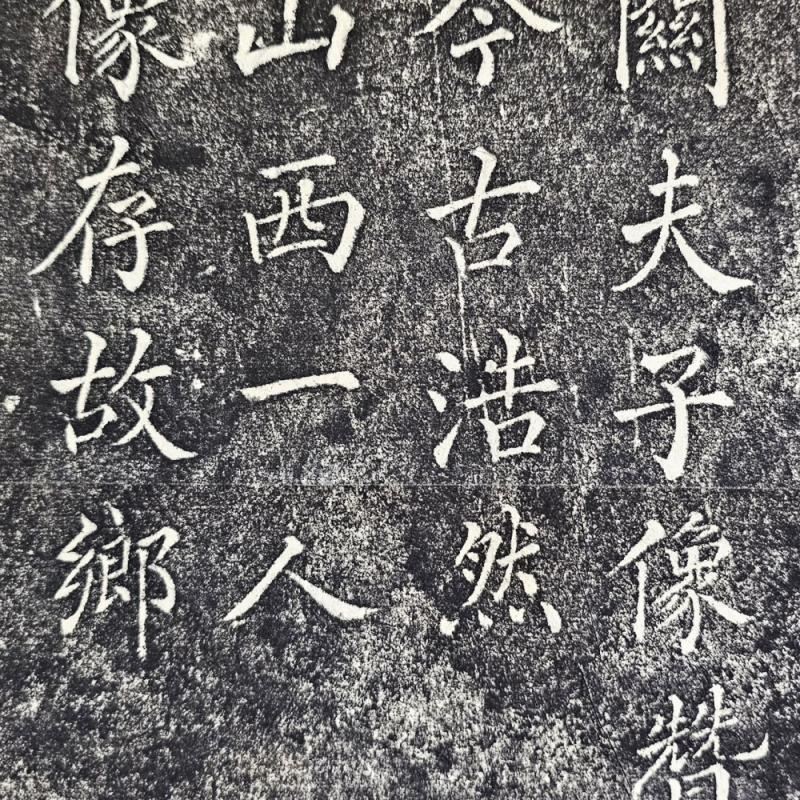 關夫子像贊
今古浩然
山西一人
像存故鄉